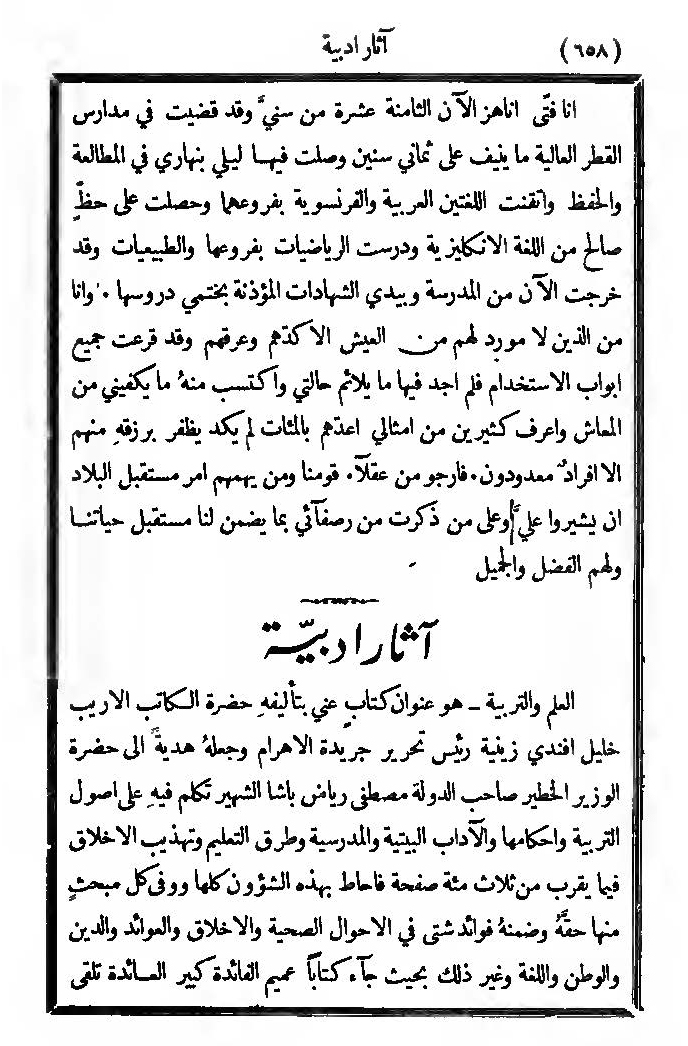 (٦٥٨) آثار ادبية
انا فتًى اناهز الآن الثامنة عشرة من سنيَّ وقد قضيت في مدارس
القطر العالية ما ينيف على ثماني سنين وصلت فيها ليلي بنهاري في المطالعة
والحفظ واتقنت اللغتين العربية والفرنسوية بفروعهما وحصلت على حظٍّ
صالح من اللغة الانكليزية ودرست الرياضيات بفروعها والطبيعيات وقد
خرجت الآن من المدرسة وبيدي الشهادات المؤذنة بختمي دروسها ٠ وانا
من الذين لا مورد لهم من العيش الا كدّهم وعرقهم وقد قرعت جميع
ابواب الاستخدام فلم اجد فيها ما يلائم حالتي واكتسب منهُ ما يكفيني من
المعاش واعرف كثيرين من امثالي اعدّهم بالمئات لم يكد يظفر برزقهِ منهم
الا افرادٌ معدودون ٠ فارجو من عقلآء قومنا ومن يهمهم امر مستقبل البلاد
ان يشيروا عليَّ وعلى من ذكرت من رصفآئي بما يضمن لنا مستقبل حياتنا
ولهم الفضل والجميل
آثار ادبيّة
العلم والتربية ــ هو عنوان كتابٍ عني بتأليفهِ حضرة الكاتب الاريب
خليل افندي زينية رئيس تحرير جريدة الاهرام وجعلهُ هديةً الى حضرة
الوزير الخطير صاحب الدولة مصطفى رياض باشا الشهير تكلم فيهِ على اصول
التربية واحكامها والآداب البيتية والمدرسية وطرق التعليم وتهذيب الاخلاق
فيما يقرب من ثلاث مئة صفحة فاحاط بهذه الشؤون كلها ووفى كل مبحثٍ
منها حقهُ وضمنهُ فوائد شتى في الاحوال الصحية والاخلاق والعوائد والدين
والوطن واللغة وغير ذلك بحيث جآء كتاباً عميم الفائدة كبير العائدة تلقى